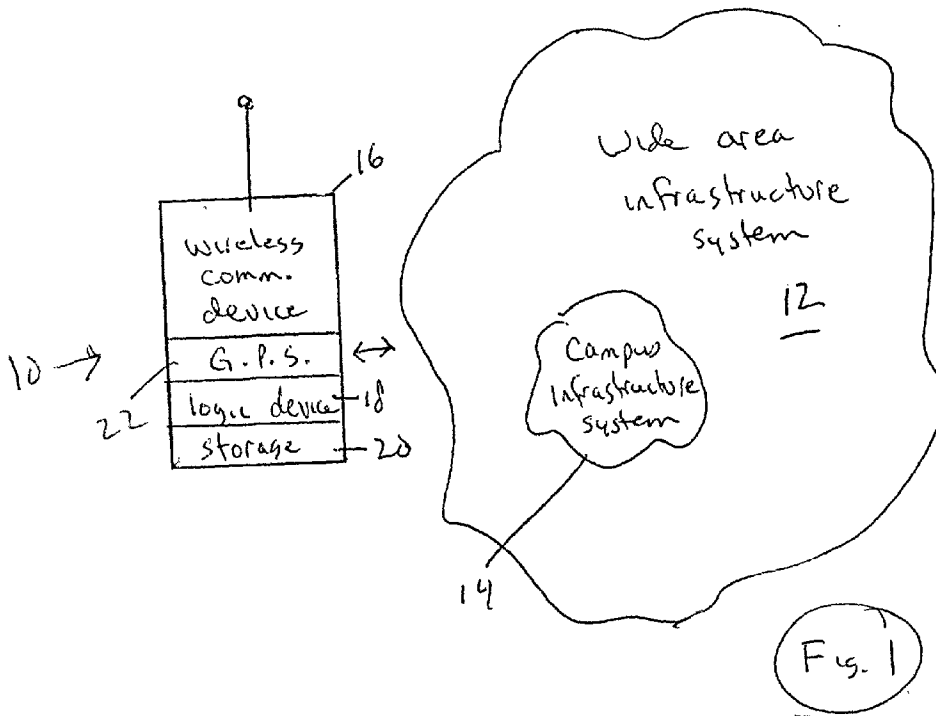 16
wireless
comm.
device
10
G.P.S.
22
logic device
18
storage
20
Wide area
infrastructure
system
12
Campus
Infrastructure
system
14
Fig. 1